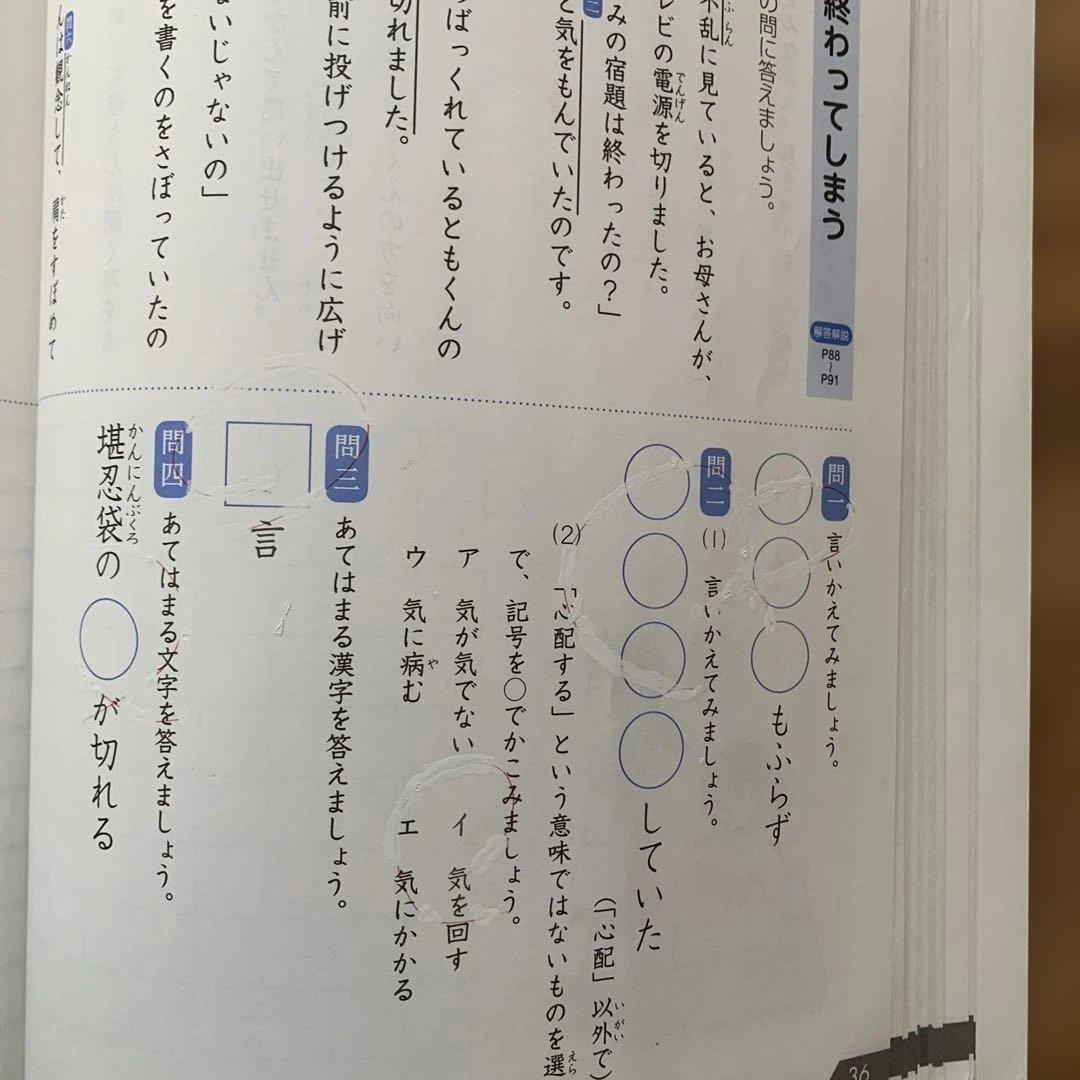 終わってしまう
解答解説
P88
〜
P91
の問に答えましょう。
不乱に見ていると、お母さんが、
レビの電源を切りました。
みの宿題は終わったの？」
と気をもんでいたのです。
ばっくれているともくんの
切れました。
前に投げつけるように広げ
ないじゃないの」
を書くのをさぼっていたの
んは観念して、肩をすぼめて
問一 言いかえてみましょう。
○○○もふらず
問二 (1) 言いかえてみましょう。
○○○○していた
（「心配」以外で）
(2) 「心配する」という意味ではないものを選
で、記号を○でかこみましょう。
ア 気が気でない イ 気を回す
ウ 気に病む エ 気にかかる
問三 あてはまる漢字を答えましょう。
□言
問四 あてはまる文字を答えましょう。
堪忍袋の○が切れる
36